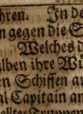 hren. In de
n gegen die S
Welches d
alben ihre Wi
n Schiffen an
al Capitain an